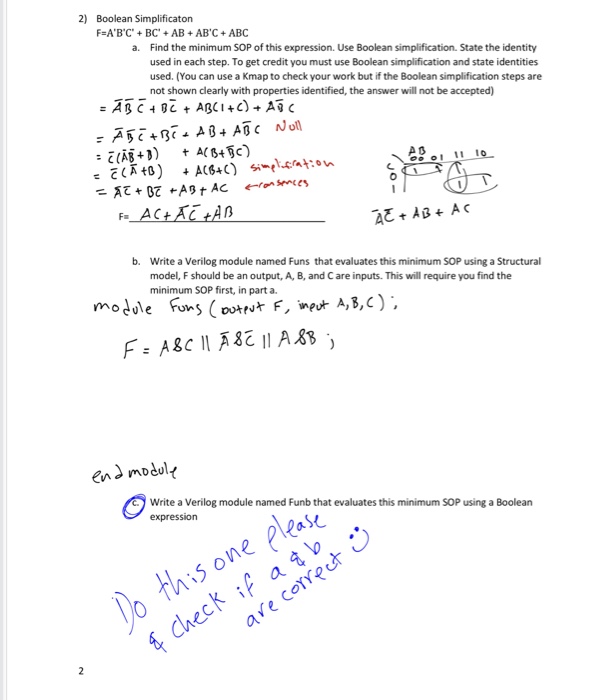 2) Boolean Simplificaton
F=A'B'C' + BC' + AB + AB'C + ABC
a. Find the minimum SOP of this expression. Use Boolean simplification. State the identity
used in each step. To get credit you must use Boolean simplification and state identities
used. (You can use a Kmap to check your work but if the Boolean simplification steps are
not shown clearly with properties identified, the answer will not be accepted)
= A̅B̅C̅ + BC̅ + AB(1+C) + AB̅C
= A̅B̅C̅ + BC̅ + AB + AB̅C Null
= C̅(A̅B̅+B) + A(B+B̅C)
= C̅(A̅+B) + A(B+C) simplification
= A̅C̅ + BC̅ + AB + AC ← consences
F= AC + A̅C̅ + AB
AB
00 01 11 10
C
0 1 1 1
1 1 1
A̅C̅ + AB + AC
b. Write a Verilog module named Funs that evaluates this minimum SOP using a Structural
model, F should be an output, A, B, and C are inputs. This will require you find the
minimum SOP first, in part a.
module Funs (output F, input A,B,C);
F = A&C || A̅&C̅ || A&B;
endmodule
c. Write a Verilog module named Funb that evaluates this minimum SOP using a Boolean
expression
Do this one please
& check if a & b
are correct :)
2